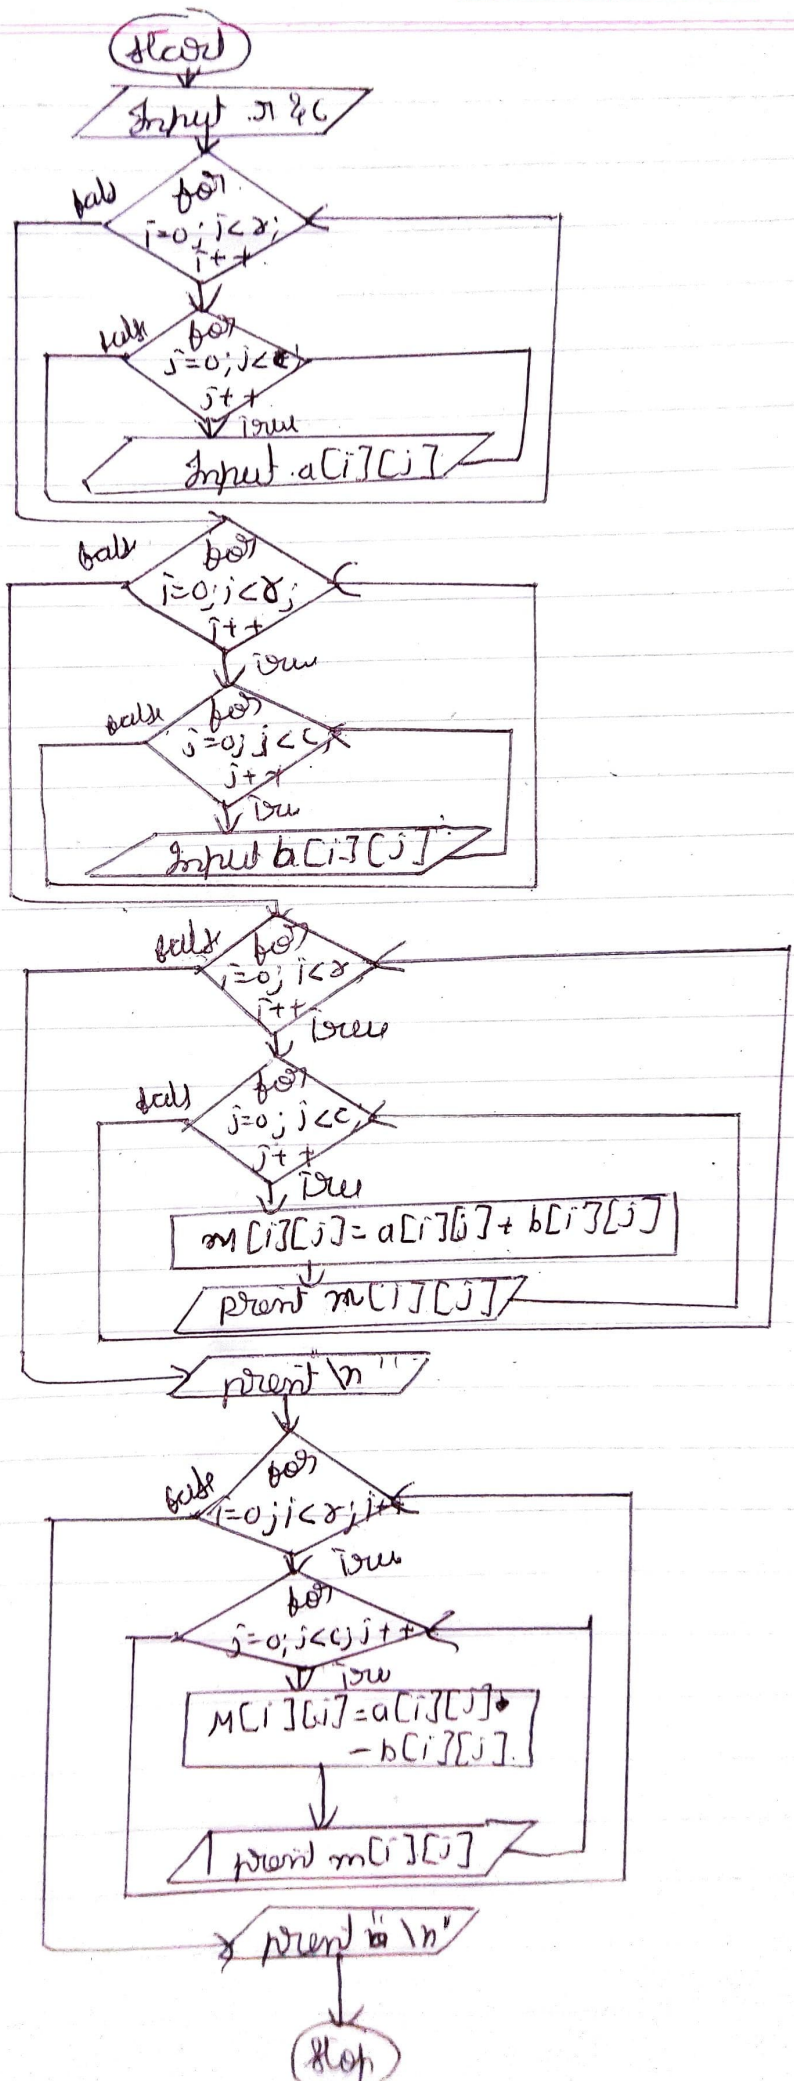 Start
Input r & c
false
for
i=0; i<r;
i++
false
for
j=0; j<c;
j++
true
Input a[i][j]
false
for
i=0; i<r;
i++
true
false
for
j=0; j<c;
j++
true
Input b[i][j]
false
for
i=0; i<r,
i++
true
false
for
j=0; j<c,
j++
true
m[i][j] = a[i][j] + b[i][j]
prent m[i][j]
prent "\n"
false
for
i=0; i<r; i++
true
for
j=0; j<c; j++
true
M[i][j] = a[i][j]
- b[i][j].
prent m[i][j]
prent "\n"
Stop